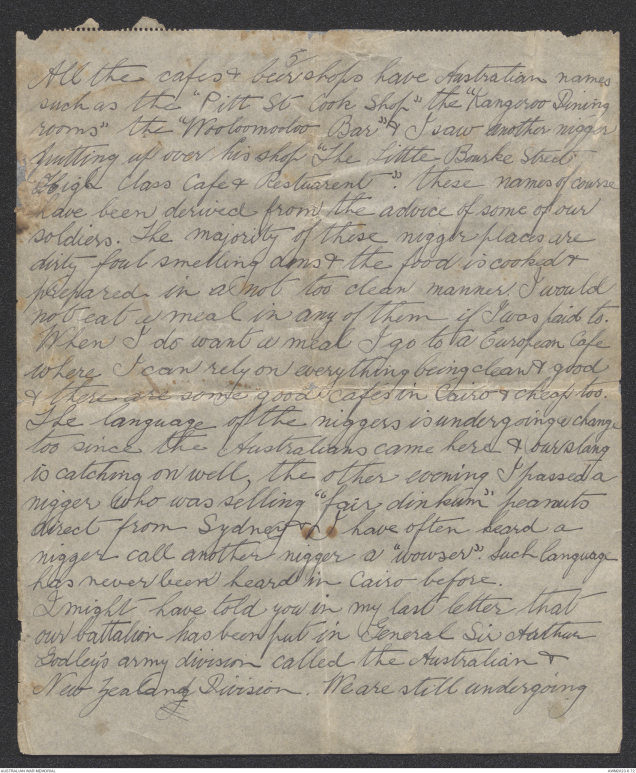 5
All the cafes & beer shops have Australian names
such as the "Pitt St Cook Shop" the "Kangeroo Dining
rooms" the "Wooloomooloo Bar" & I saw another nigger
putting up over his shop "The Little Bourke Street
High Class Cafe & Restuarent". these names of course
have been derived from the advice of some of our
soldiers. The majority of these nigger places are
dirty foul smelling dens & the food is cooked &
prepared in a not too clean manner I would
not eat a meal in any of them if I was paid to.
When I do want a meal I go to a European Cafe
where I can rely on everything being clean & good
& there are some good cafes in Cairo & cheap too.
The language of the niggers is undergoing a change
too since the Australians came here & our slang
is catching on well, the other evening I passed a
nigger who was selling "fair dinkum" peanuts
direct from Sydney & I have often heard a
nigger call another nigger a "wowser". Such language
has never been heard in Cairo before.
I might have told you in my last letter that
our battalion has been put in General Sir Arthur
Godley's army division called the Australian &
New Zealand Division. We are still undergoing
AUSTRALIAN WAR MEMORIAL